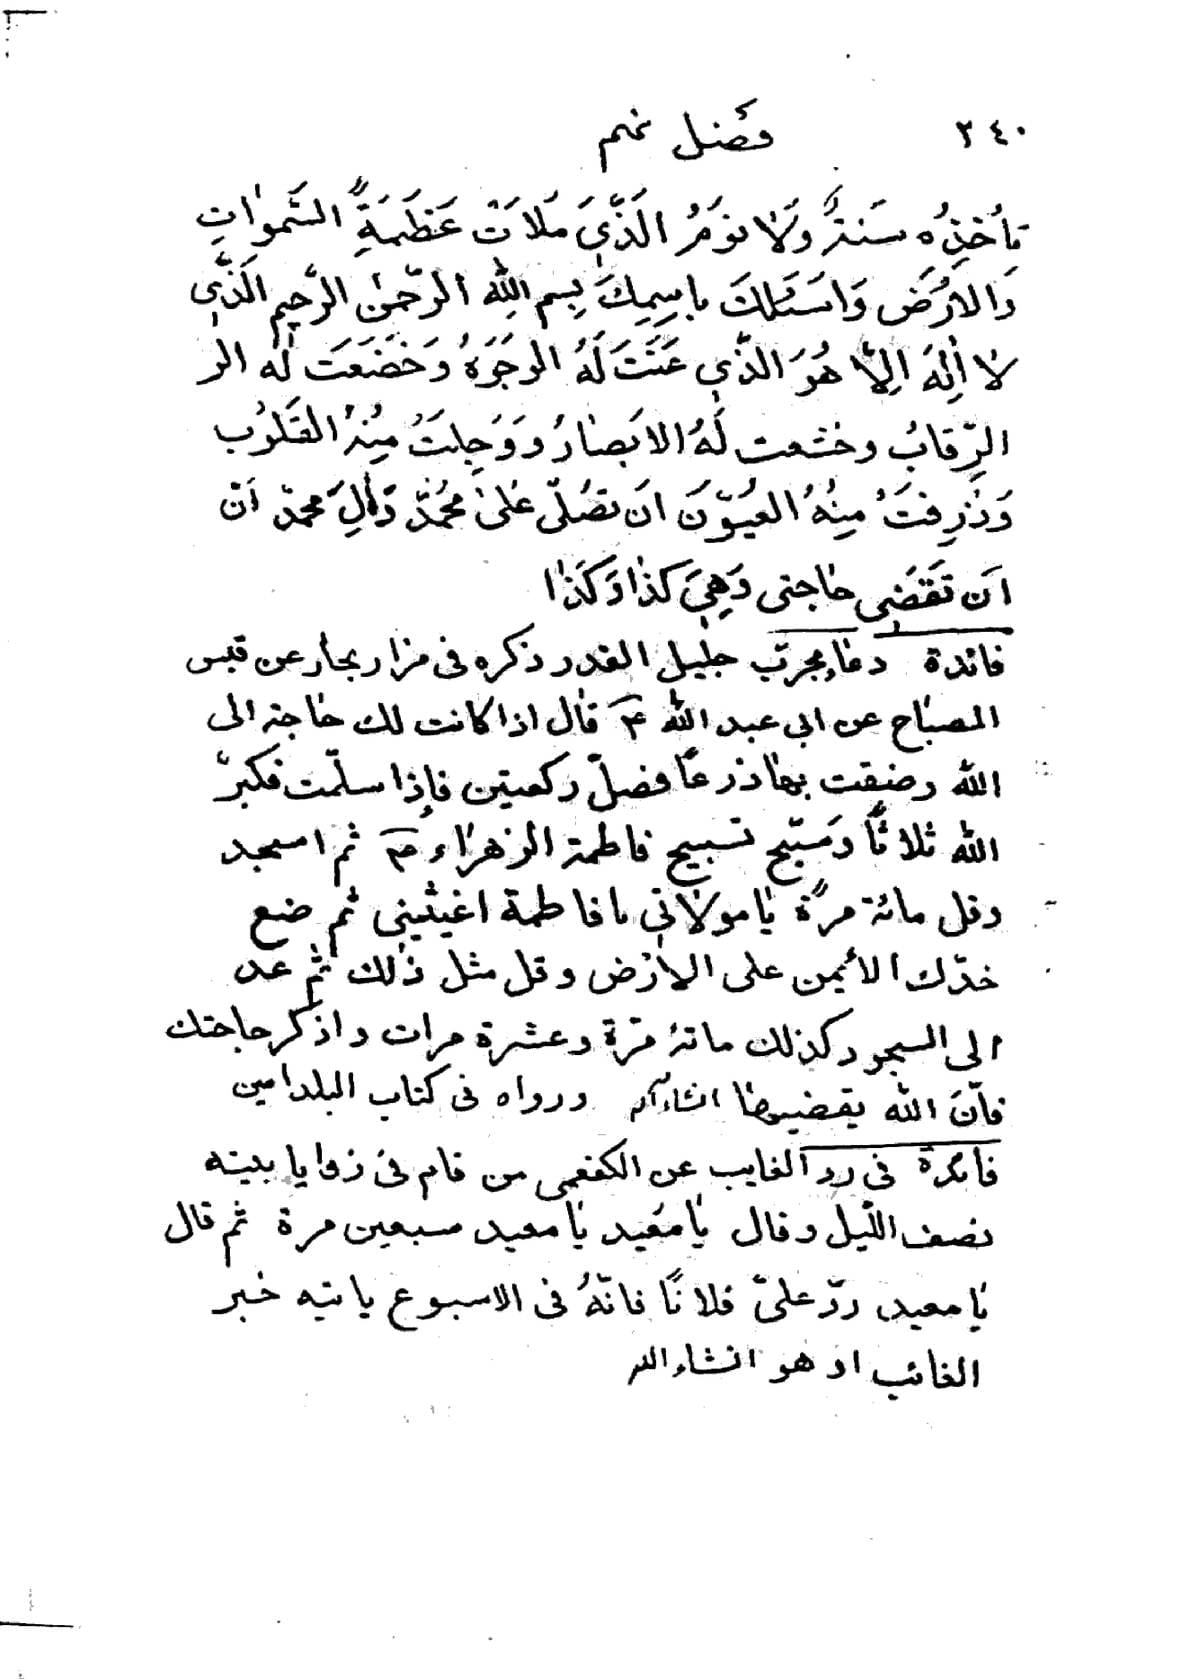 ٢٤٠ فصل نهم
تأخُذُهُ سَنةٌ وَلا نومُ الَذّي مَلَات عَظَمَةِ السَّمواتِ
وَالارَضَ وَاسَئلكَ باسمِكَ بِسم اللهِ الرّحمن الرّحيم الَذّي
لا اِلهَ اِلّا هُوَ الذّي عَنَتَ لَهُ الوجَوَهُ وَخَضَعَت لَهُ الر
الرِّقابُ وخشعت لَهُ الابَصارُ وَوَجِلتَ مِنهُ القَلوُب
وَذرِفتَ مِنهُ العيوُنَ ان تصُلّى عَلى محُمَدّ وَآلِ محمدّ اَن
اَن تَقضَى حاجتى وَهِيَ كذا وَكَذا
فائدة دعاء مجرّب جليل القدر ذكره فى مزار بحار عن قبس
المصباح عن ابى عبد الله ع قال اذا كانت لك حاجة الى
الله وضقت بها ذرعًا فصلّ ركعتين فاِذا سلّمت فكبّر
الله ثلاثًا وَسَبّح تسبيح فاطمة الزهراء ع ثم اسجد
وقل مائة مرّة يا مولاتي يا فاطمة اغيثيني ثم ضع
خدّك الأيمن على الارض وقل مثل ذلك ثم عد
الى السجود كذلك مائة مرّة وعشرة مرات واذكر حاجتك
فانّ الله يقضيها انشاءالله ورواه فى كتاب البلد امين
فائدة فى رد الغايب عن الكفعمى من قام فى زوايا بيته
نصف اللّيل وقال يا مُعيد يا معيد سبعين مرة ثم قال
يا معيد ردّ علىّ فلانًا فانّهُ فى الاسبوع ياتيه خبر
الغائب او هو انشاء الله